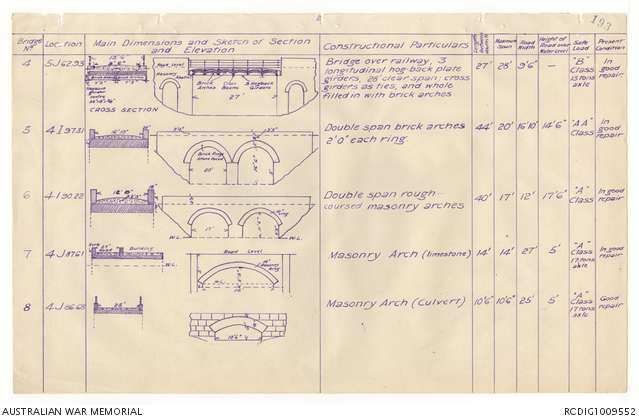 193
Bridge Nº
Location
Main Dimensions and Sketch of Section and Elevation
Constructional Particulars
Maximum Span
Road Width
Height of Road over Water Level
Safe Load
Present Condition
4
5J6293
Road Level
Masonry
Brick Arches
Cross Beams
3 Hogback Girders
27'
CROSS SECTION
Bridge over railway, 3
longitudinal hog-back plate
girders, 28' clear span; cross
girders as ties, and whole
filled in with brick arches
27'
28'
9'6"
—
"B" Class
axle
In good repair
5
4I9731
20'
Double span brick arches
2'0" each ring.
44'
20'
16'10"
14'6"
"AA" Class
In good repair
6
4I9022
12'
17'
W.L.
W.L.
Double span rough-
coursed masonry arches
40'
17'
12'
17'6"
"A" Class
In good repair
7
Building
W.L.
Road Level
Masonry Arch (limestone)
14'
14'
27'
5'
"A" Class
17 tons axle
In good repair
8
25'
10'6"
Masonry Arch (Culvert)
10'6"
10'6"
25'
5'
"A" Class
17 tons axle
Good repair
AUSTRALIAN WAR MEMORIAL
RCDIG1009552